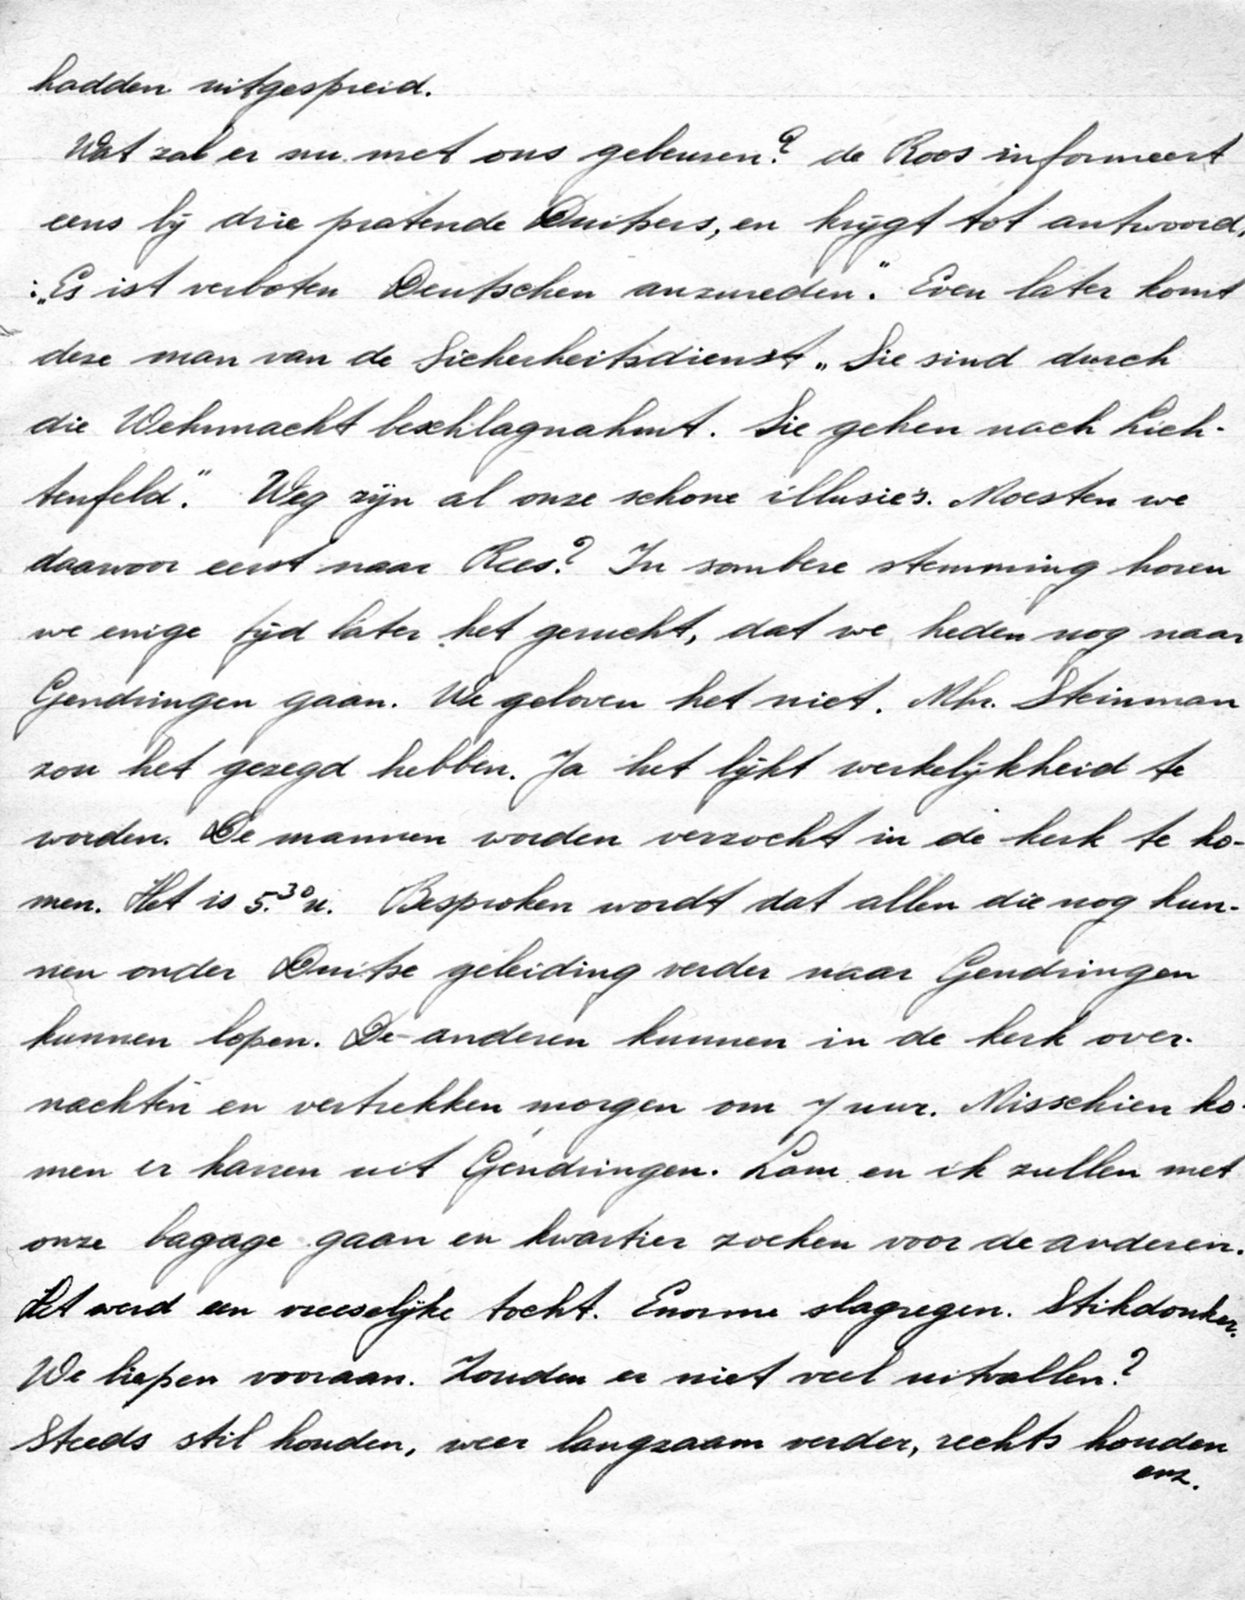 hadden uitgespreid.
Wat zal er nu met ons gebeuren? de Roos informeert
eens bij drie pratende Duitsers, en krijgt tot antwoord,
:„Es ist verboten Deutschen anzureden". Even later komt
deze man van de Sicherheitsdienst „Sie sind durch
die Wehrmacht beschlagnahmt. Sie gehen nach Lich-
tenfeld". Weg zijn al onze schone illusie's. Moesten we
daarvoor eerst naar Rees? In sombere stemming horen
we enige tijd later het gerucht, dat we heden nog naar
Gendringen gaan. We geloven het niet. Mhr. Steinman
zou het gezegd hebben. Ja het lijkt werkelijkheid te
worden. De mannen worden verzocht in de kerk te ko-
men. Het is 5.30 u. Besproken wordt dat allen die nog kun-
nen onder Duitse geleiding verder naar Gendringen
kunnen lopen. De anderen kunnen in de kerk over-
nachten en vertrekken morgen om 7 uur. Misschien ko-
men er karren uit Gendringen. Lam en ik zullen met
onze bagage gaan en kwartier zoeken voor de anderen.
Het werd een vreeselijke tocht. Enorme slagregen. Stikdonker.
We liepen vooraan. Zouden er niet veel uitvallen?
Steeds stil houden, weer langzaam verder, rechts houden
enz.